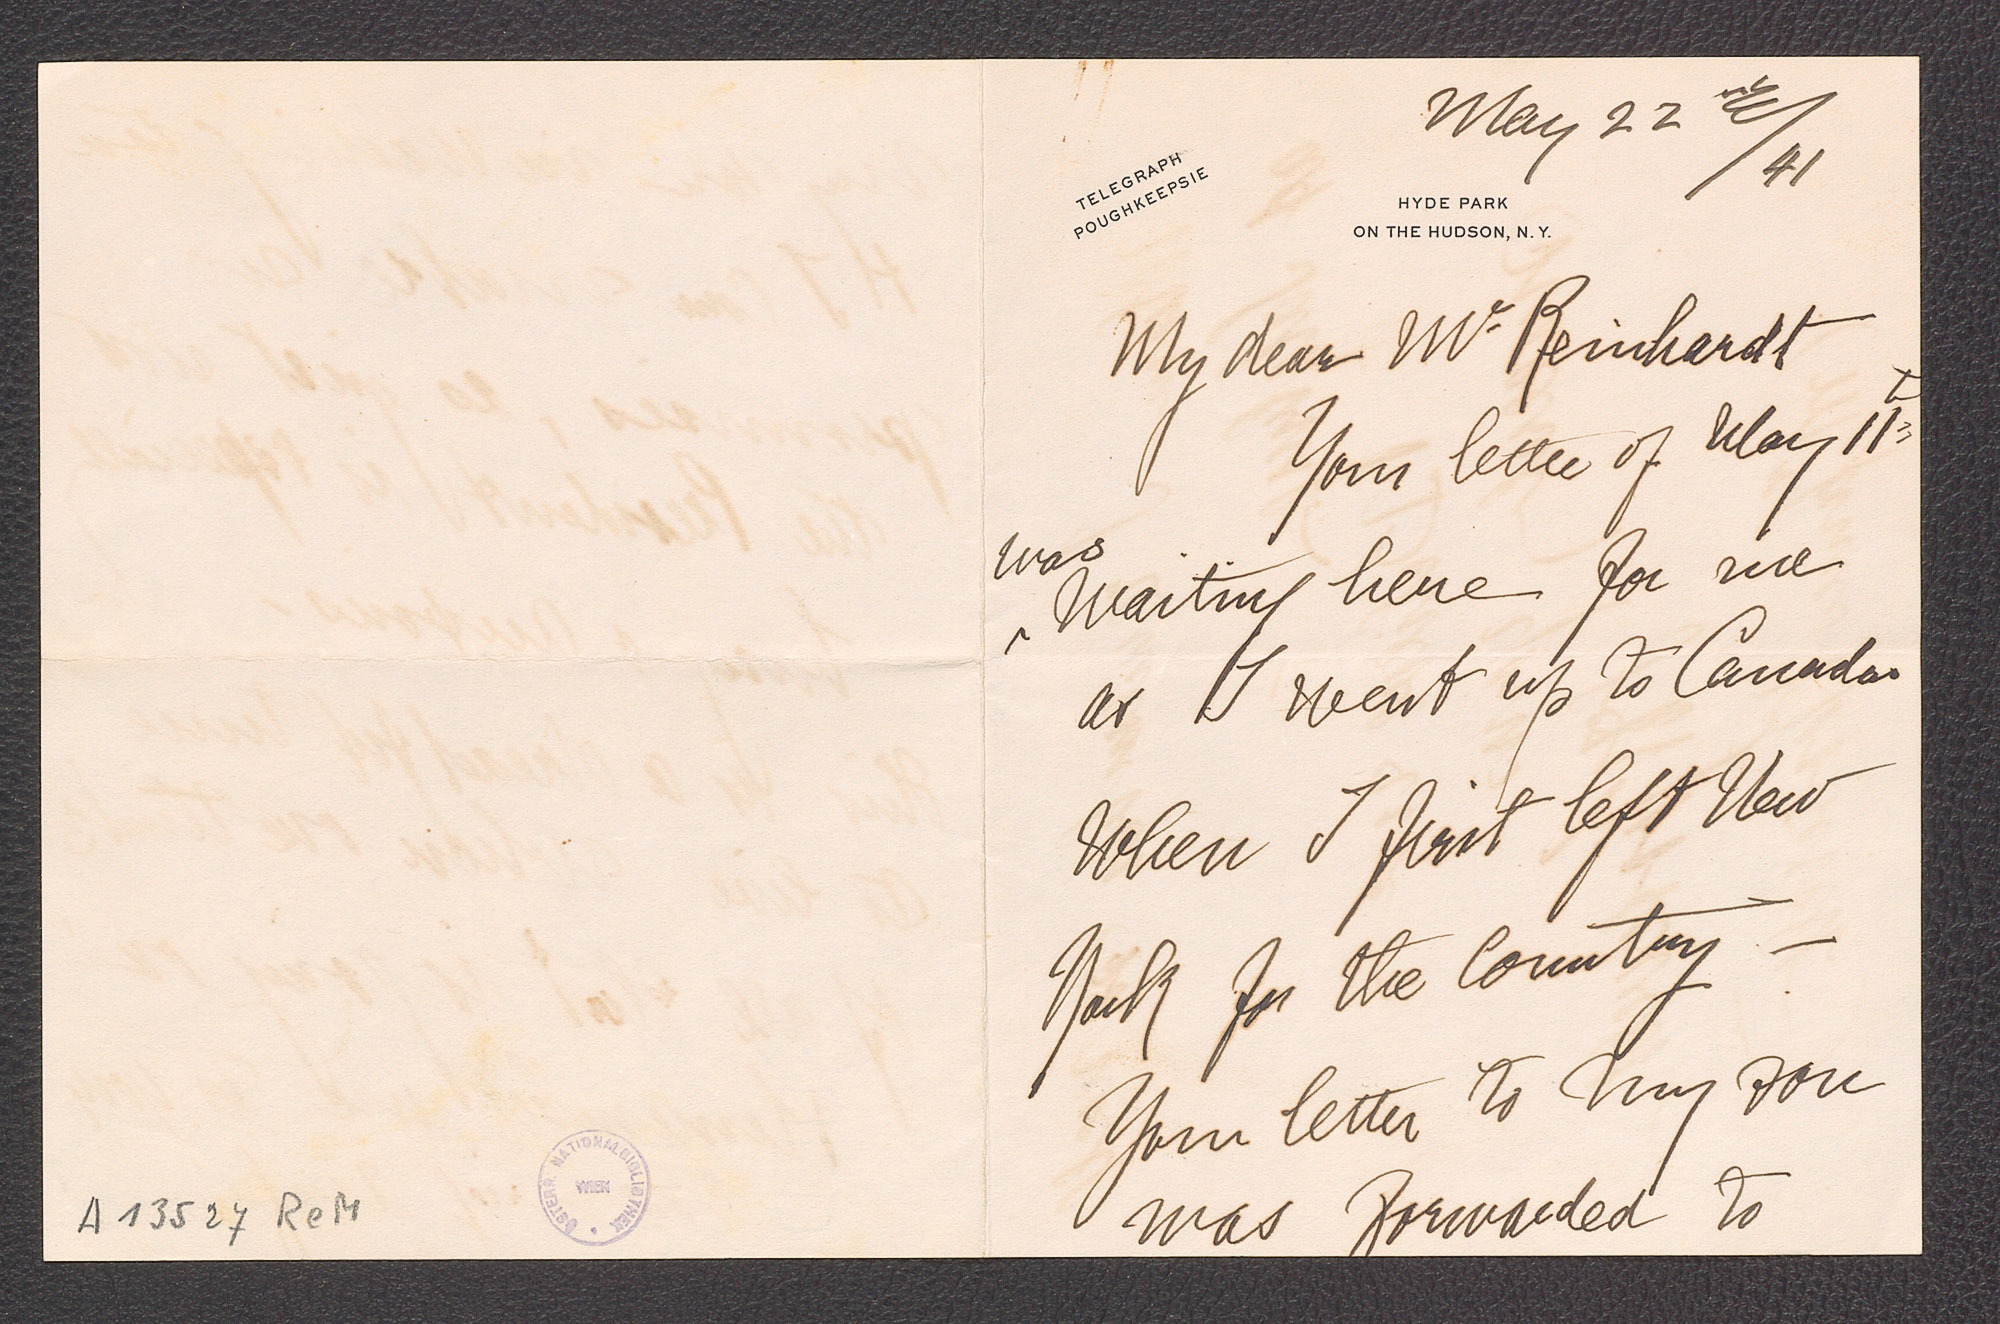 May 22nd/41
TELEGRAPH
POUGHKEEPSIE
HYDE PARK
ON THE HUDSON, N.Y.
My dear Mr Reinhardt
Your letter of May 11th
was
waiting here for me
as I went up to Canada
when I first left New
York for the Country —
Your letter to my son
was forwarded to
A 13527 ReM
ÖSTERR. NATIONALBIBLIOTHEK
WIEN